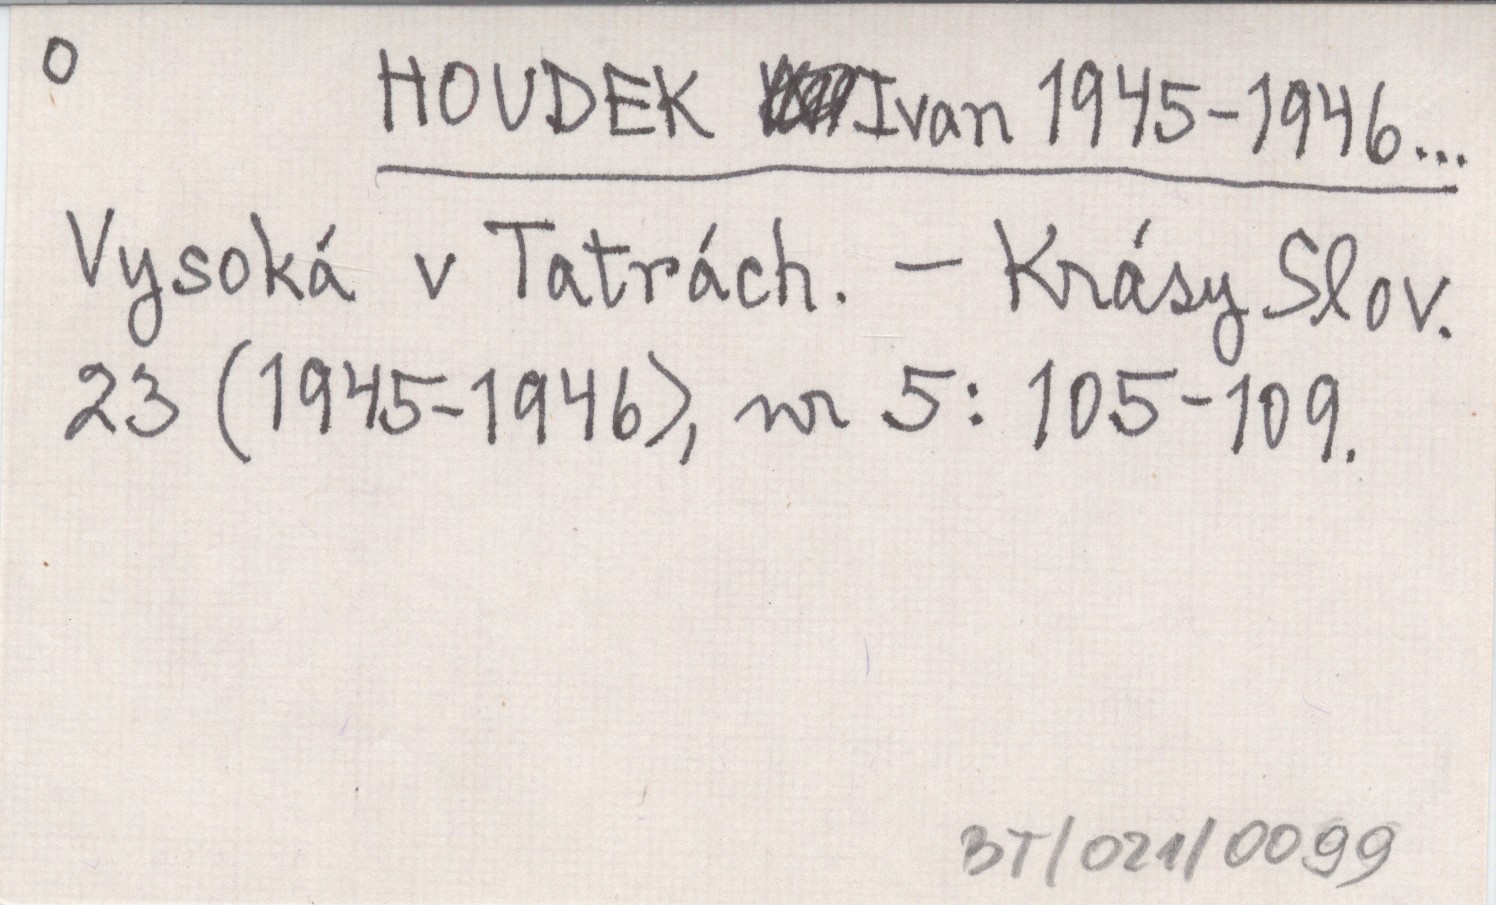 O
HOUDEK Ivan 1945-1946...
Vysoká v Tatrách. – Krásy Slov.
23 (1945-1946), nr 5: 105-109.
BT/021/0099